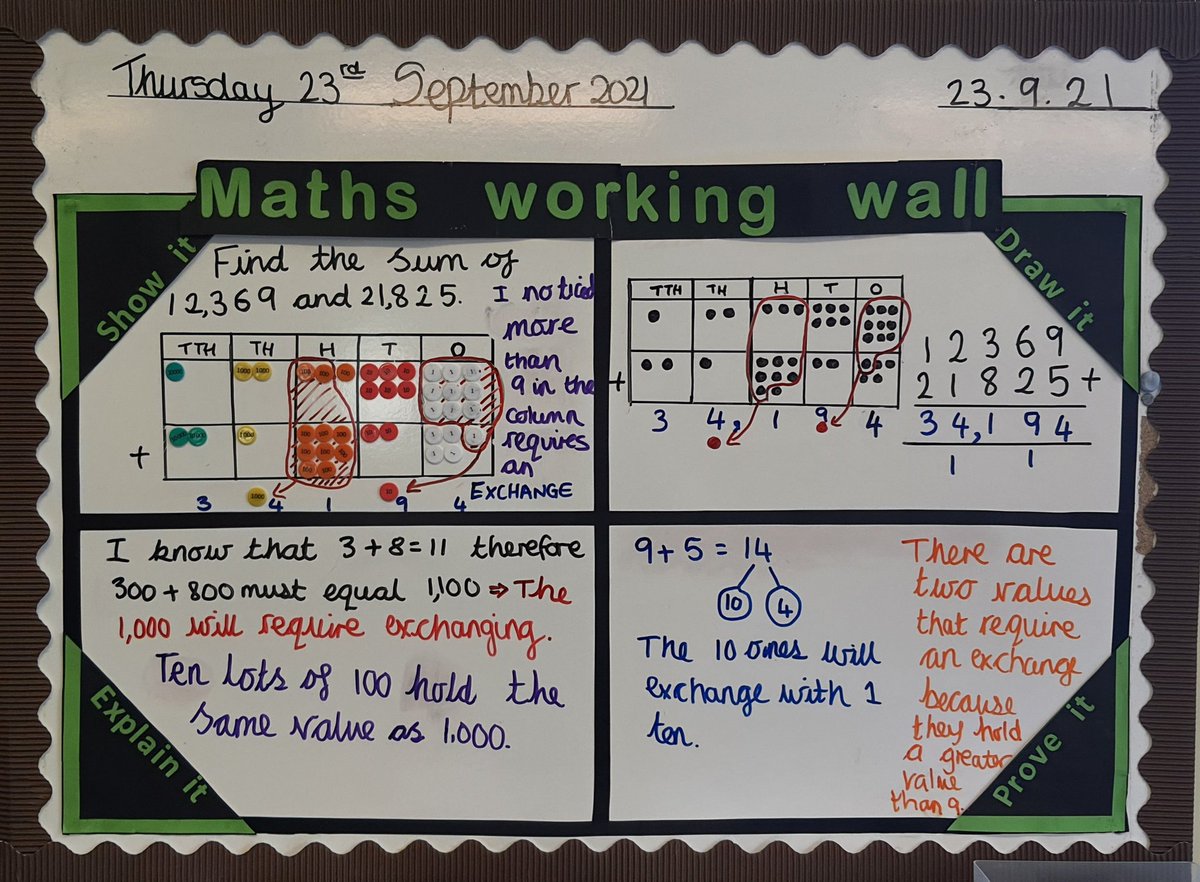 Thursday 23rd September 2021
23.9.21
Maths working wall
Show it
Find the sum of
12,369 and 21,825.
I noticed
more
than
9 in the
column
requires
an
EXCHANGE
TTH TH H T O
10000 1000 1000 100 100 100 10 10 10 1 1 1
10 10 10 1 1 1
1 1 1
+ 10000 10000 1000 100 100 100 10 10 1 1 1
100 100 100 1 1
100 100
3 1000 4 1 10 9 4
Draw it
TTH TH H T O
+
3 4, 1 9 4
12369
21825+
34,194
1 1
Explain it
I know that 3+8=11 therefore
300+800 must equal 1,100 ⇒ The
1,000 will require exchanging.
Ten lots of 100 hold the
same value as 1,000.
Prove it
9+5=14
10 4
The 10 ones will
exchange with 1
ten.
There are
two values
that require
an exchange
because
they hold
a greater
value
than 9.